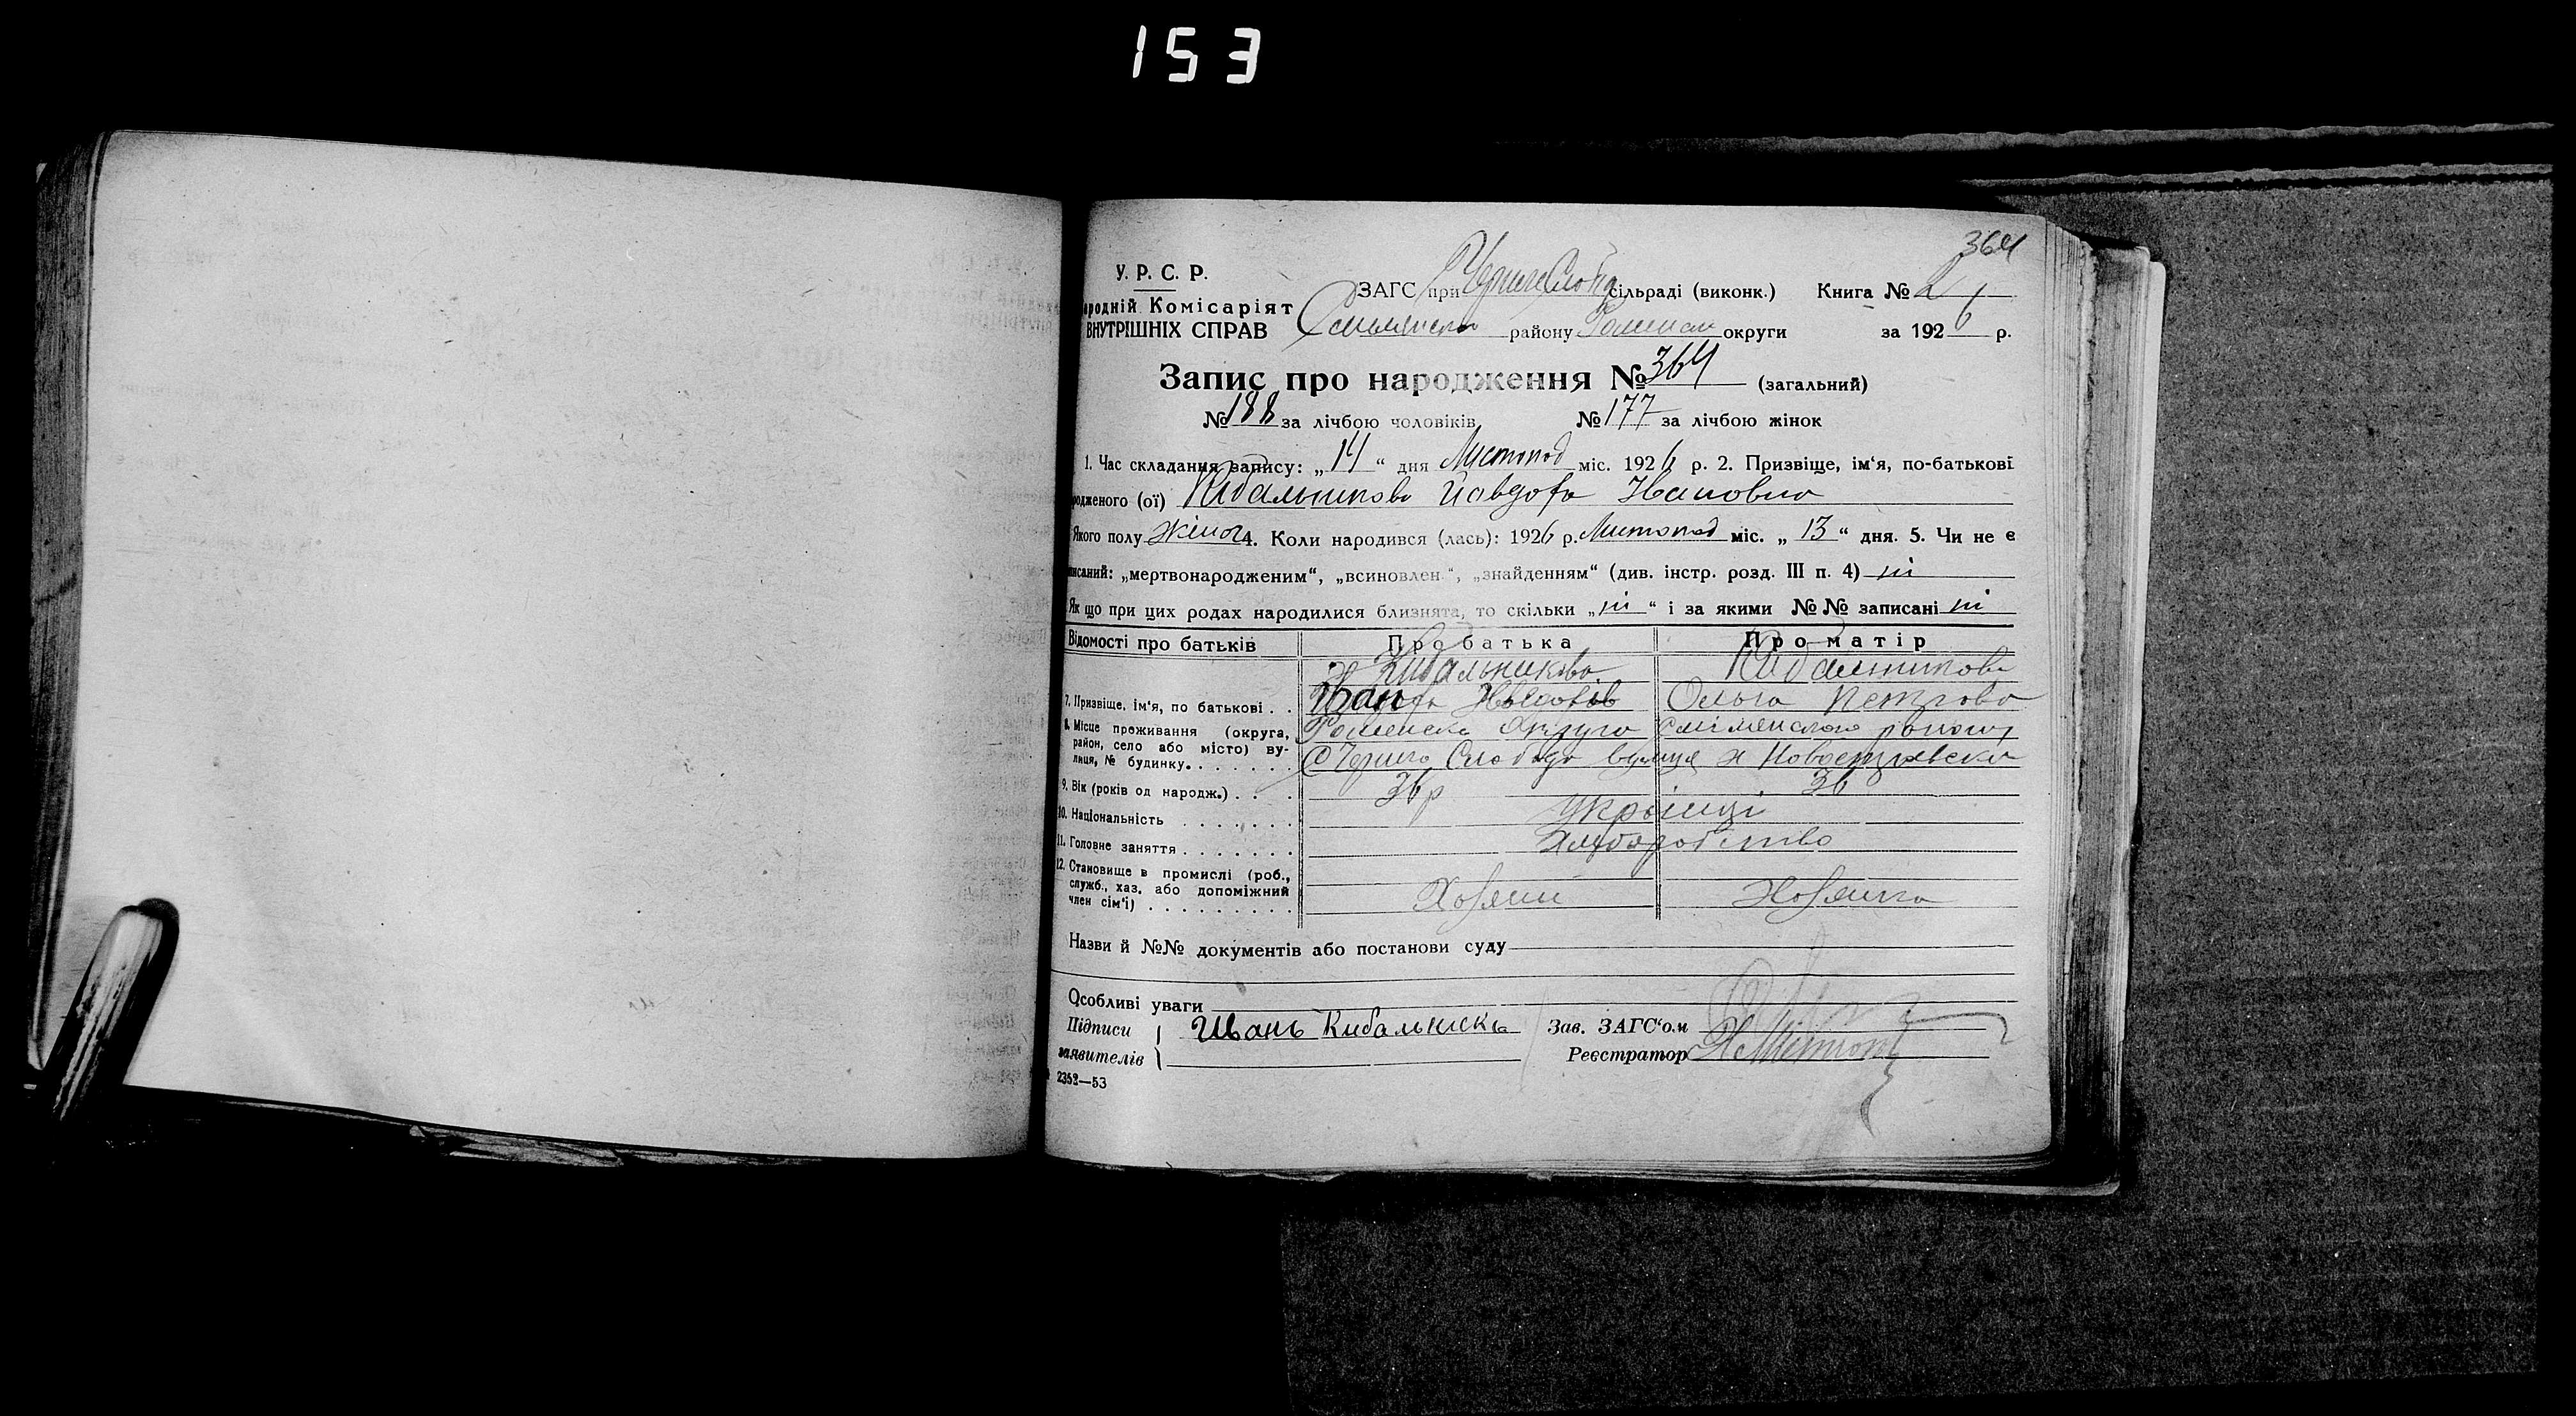 153
364
У. Р. С. Р.
ародній Комісаріят
ВНУТРІШНІХ СПРАВ
ЗАГС при сільраді (виконк.) Книга № 2
району округи за 1926 р.
Запис про народження № 364 (загальний)
№ 188 за лічбою чоловіків № 177 за лічбою жінок
1. Час складання запису: „14“ дня Листопад міс. 1926 р. 2. Призвіще, ім‘я, по-батькові
родженого (ої) Кибальникова Ивановна
Якого полу 4. Коли народився (лась): 1926 р. Листопад міс. „13“ дня. 5. Чи не є
писаний: „мертвонародженим“, „всиновлен.“, „знайденням“ (див. інстр. розд. III п. 4) ні
Як що при цих родах народилися близнята, то скільки „ні“ і за якими №№ записані ні
Відомості про батьків Про батька Про матір
Кибальникова Кибальникова
7. Призвіще, ім‘я, по батькові . . Иван Ольга Петрова
8. Місце проживання (округа, район, село або місто) вулиця, № будинку. . . . . . Роменска Округа району
Слобода вулиця
9. Вік (років од народж.) . . . 36 р 36
10. Національність . . . . . . . Украінці
11. Головне заняття . . . . . . . Хлібаробство
12. Становище в промислі (роб.,
служб., хаз. або допоміжний
член сім‘ї) . . . . . . . . . Хозяин Хозяйка
Назви й №№ документів або постанови суду
Особливі уваги
Підписи Иванъ Зав. ЗАГС‘ом
заявителів Реєстратор
2352—53